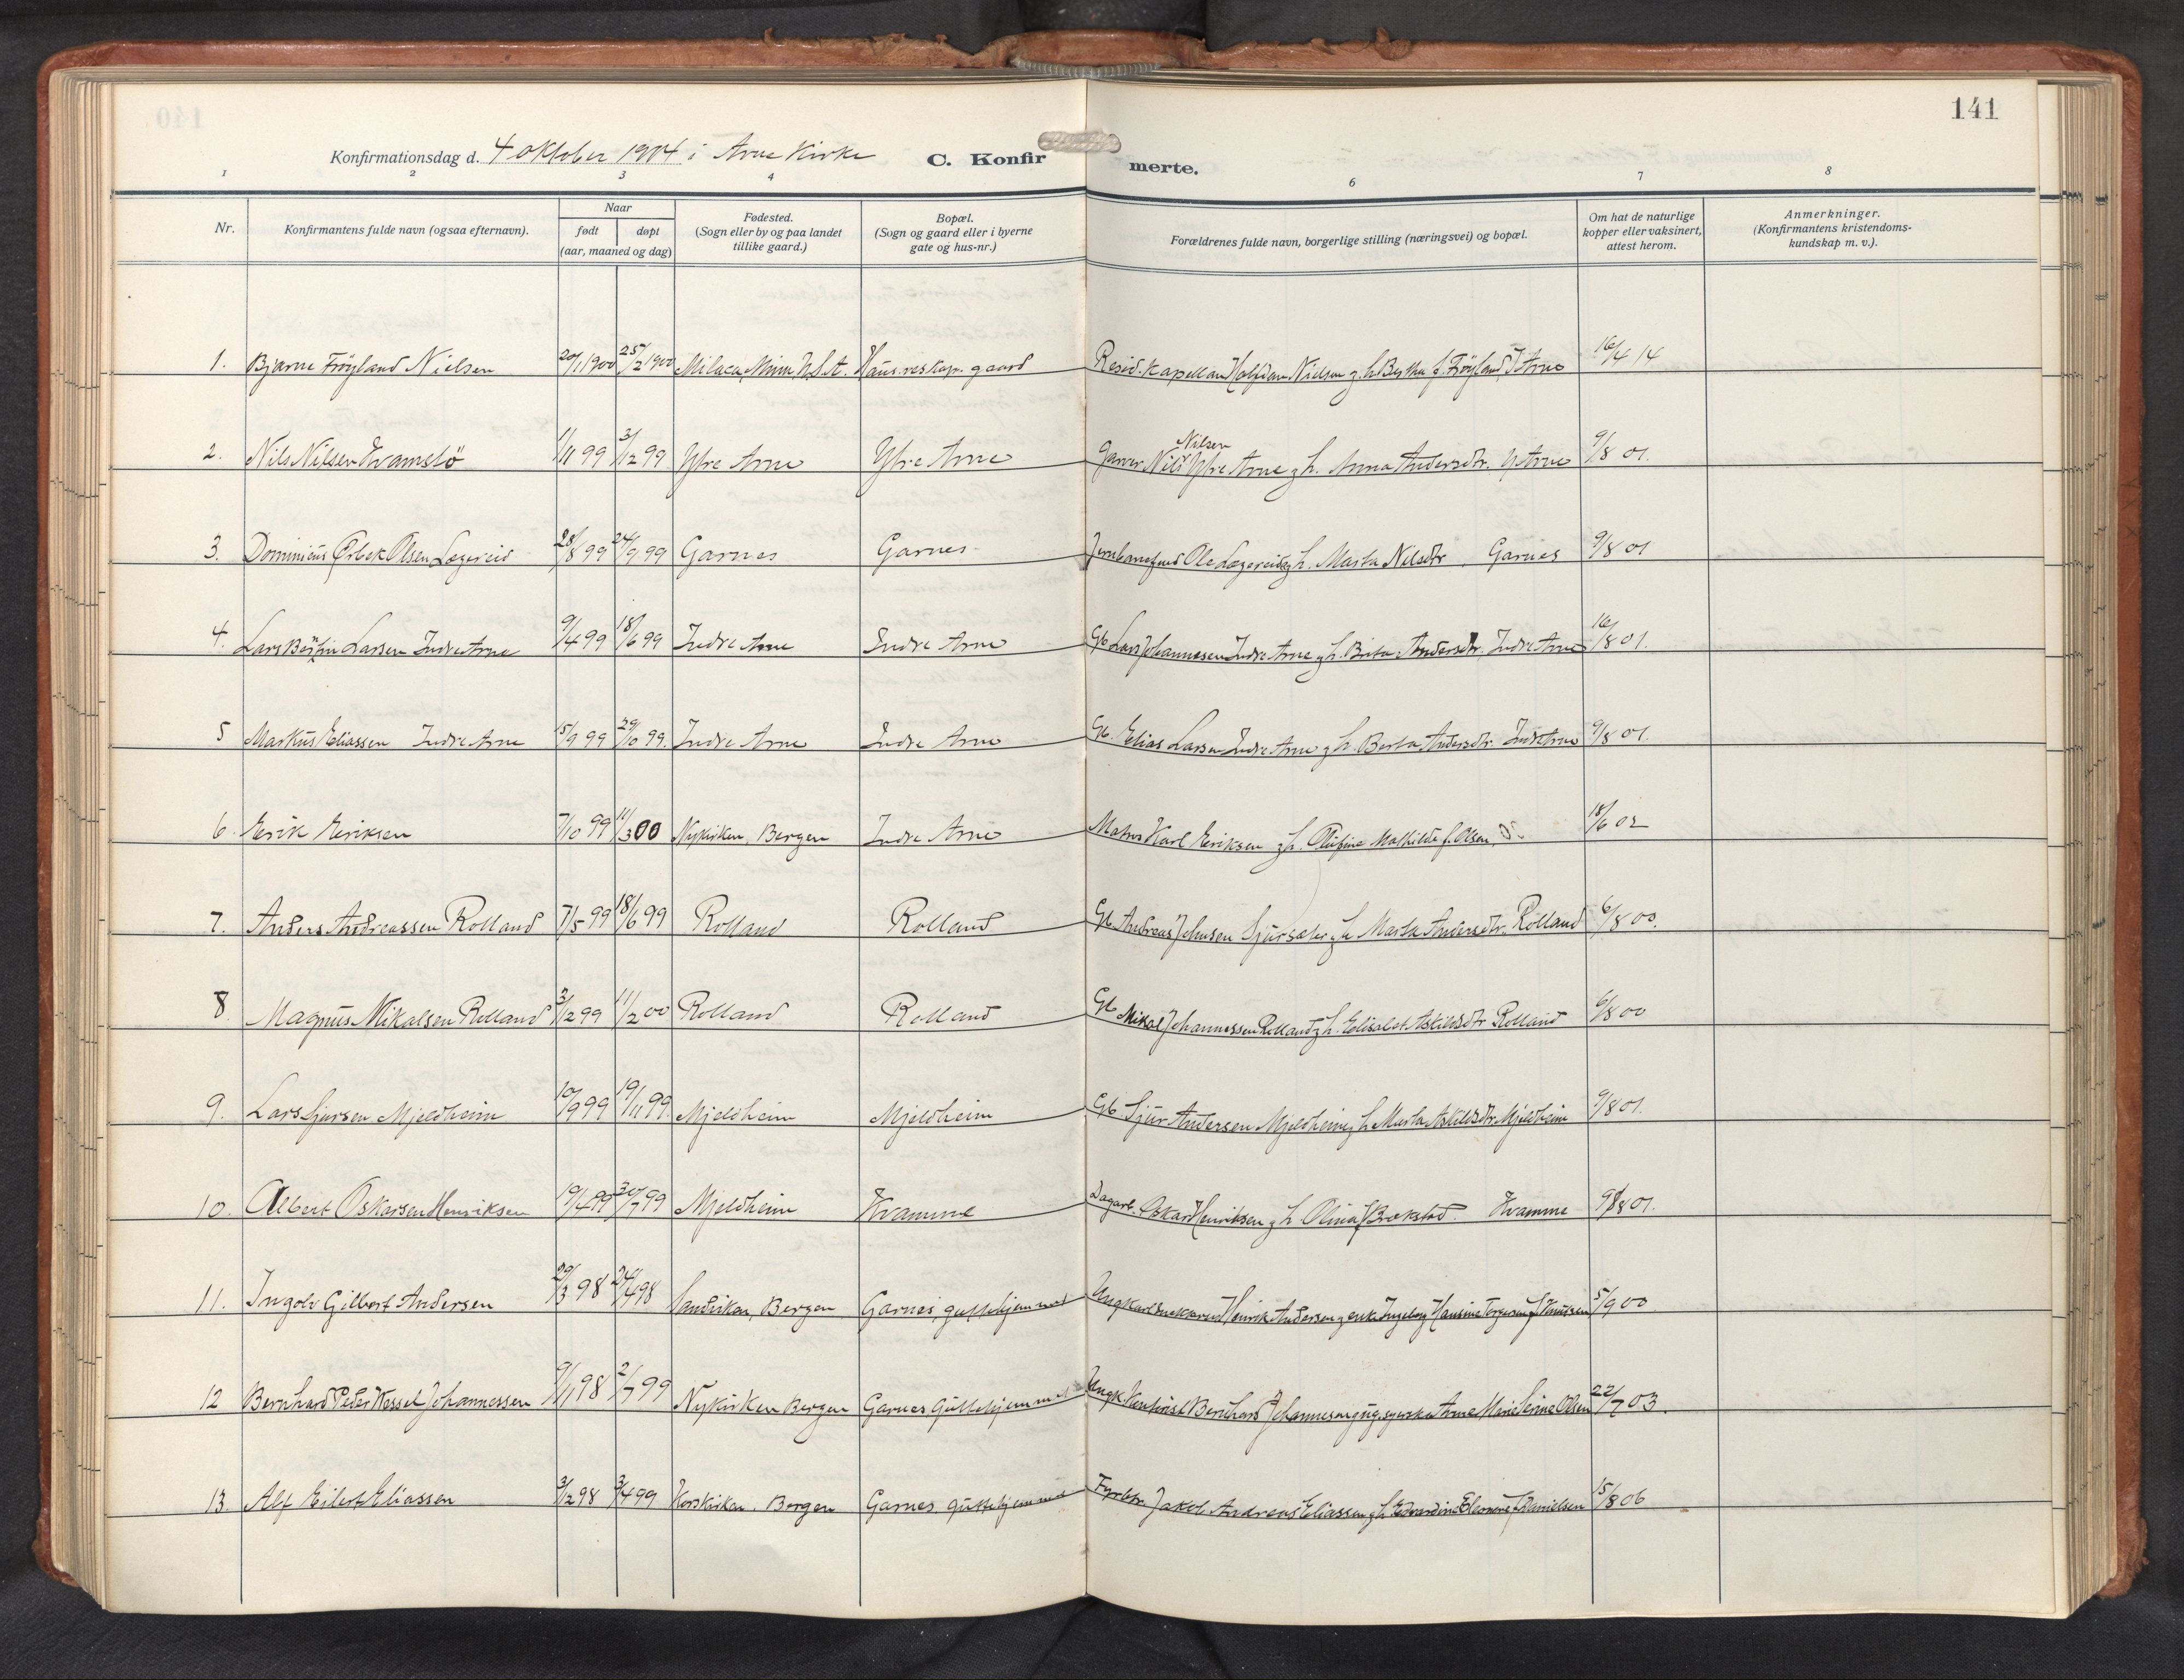 141
Konfirmationsdag d. 4 oktober 1914 i Arne Kirke C. Konfirmerte.
1 2 3 4 6 7 8
Nr. Konfirmantens fulde navn (ogsaa efternavn). Naar født døpt (aar, maaned og dag) Fødested. (Sogn eller by og paa landet tillike gaard.) Bopæl. (Sogn og gaard eller i byerne gate og hus-nr.) Forældrenes fulde navn, borgerlige stilling (næringsvei) og bopæl. Om hat de naturlige kopper eller vaksinert, attest herom. Anmerkninger. (Konfirmantens kristendomskundskap m. v.).
1. Bjarne Fröyland Nielsen 20/1 1900 25/2 1900 Milaca, Minn, U.S.A. Haus res.kap. gaard Resid. Kapellan Halfdan Nielsen g. h. Bertha f. Fröyland, I Arne 16/4 14
2. Nils Nilsen Kvamslö 1/11 99 3/12 99 Ytre Arne Ytre Arne Garver Nils Nilsen Ytre Arne g h. Anna Andersdtr. Y Arne 9/8 01.
3. Dominicus Ørbek Olsen Lægereid 28/8 99 24/9 99 Garnes Garnes Ole Lægereid g h. Marta Nilsdtr. Garnes 9/8 01
4. Lars Larsen Indre Arne 9/4 99 18/6 99 Indre Arne Indre Arne Gb. Lars Johannesen Indre Arne g h. Brita Andersdtr. Indre Arne 16/8 01.
5 Markus Eliassen Indre Arne 15/9 99 29/10 99. Indre Arne Indre Arne Gb. Elias Larsen Indre Arne g h. Berta Andersdtr. Indre Arne 9/8 01.
6. Erik Eriksen 7/10 99 11/3 00 Nykirken, Bergen Indre Arne Matros Karl Eriksen g h. Olufine Mathilde f. Olsen, 18/6 02
7. Anders Andreassen Rolland 7/5 99 18/6 99 Rolland Rolland Gb. Andreas Johnsen g h Marta Andersdtr. Rolland 6/8 00.
8 Magnus Mikalsen Rolland 3/12 99 11/2 00 Rolland Rolland Gb Mikal Johannessen Rolland g h. Elisabet Askildsdtr Rolland 6/8 00
9. Lars Sjursen Mjeldheim 10/9 99 19/11 99. Mjeldheim Mjeldheim Gb. Sjur Andersen Mjeldheim g h Marta Askildsdtr. Mjeldheim 9/8 01.
10. Albert Oskarsen Henriksen 19/4 99 30/7 99 Mjeldheim Kvamme Dagarb. Oskar Henriksen g h. Olina f Brekstad. Kvamme 9/8 01.
11. Ingolv Gilbert Andersen 29/3 98 24/4 98 Sandviken, Bergen Garnes, guttehjemmet Ungkarl Henrik Andersen g enke Ingeborg Hansine Torgersen f Knutsen 5/9 00
12 Bernhard Peder Wessel Johannessen 9/11 98 2/7 99 Nykirken Bergen Garnes Guttehjemmet Ungk. Bernhard Johannesen g ug. syerske Anne Marie Serine Olsen 22/7 03.
13. Alf Eilert Eliassen 3/12 98 3/4 99 Korskirken. Bergen Garnes guttehjemmet Fyrbtr. Jakob Andreas Eliassen g h Edvardine Eleonore f Danielsen 15/8 06